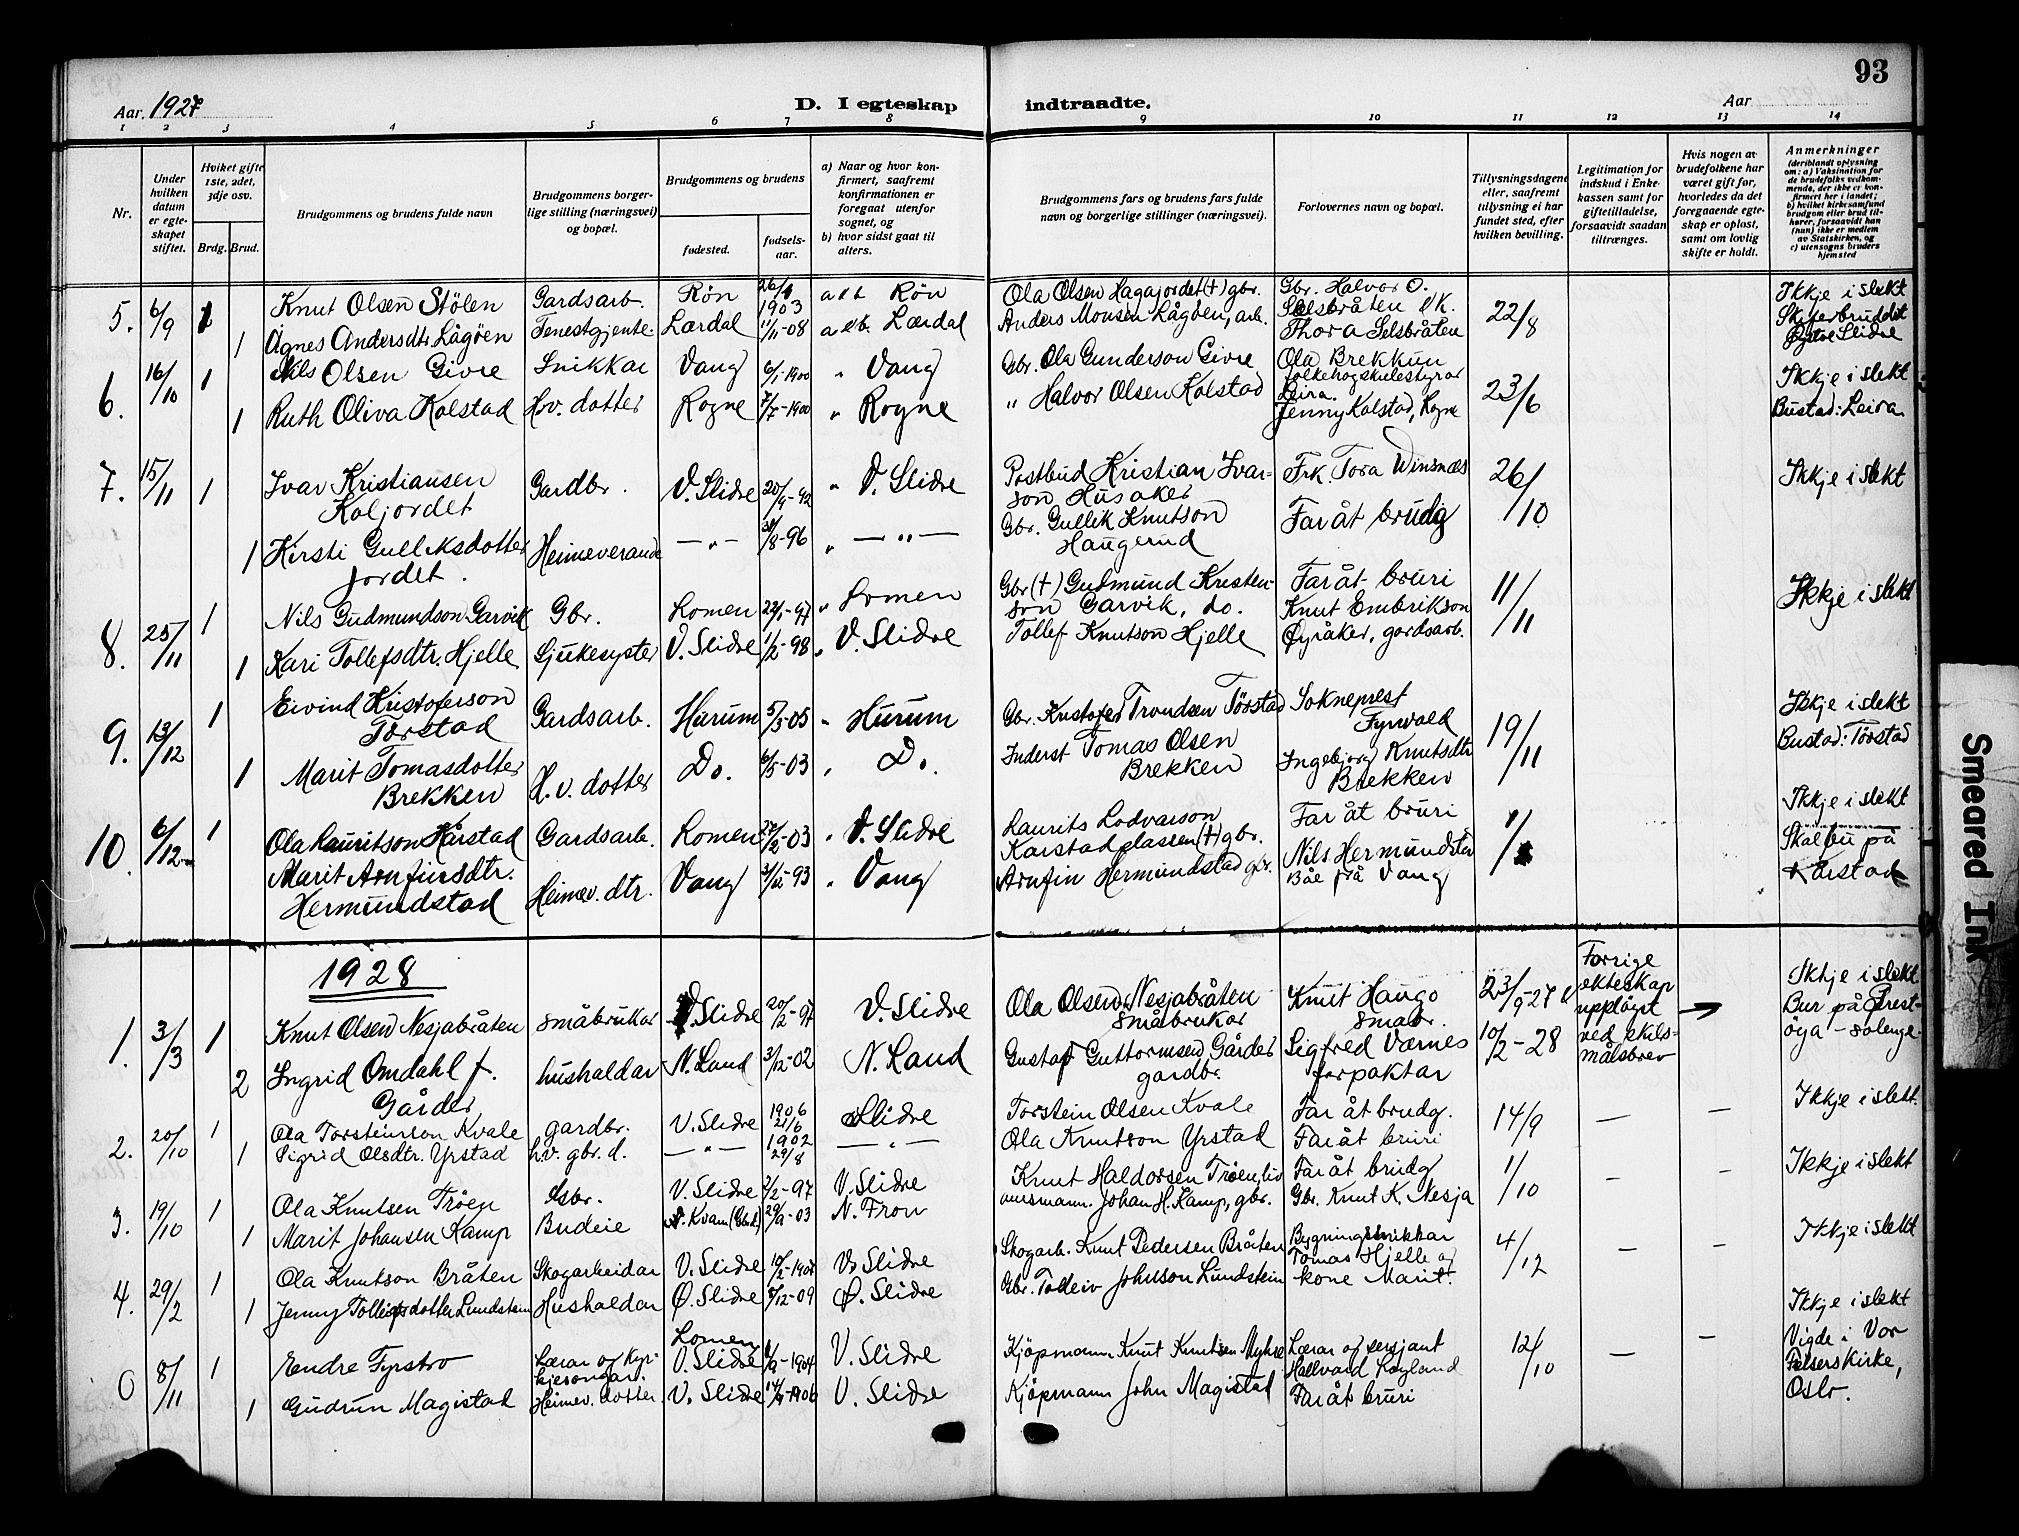 93
Aar. 1927
D. I egteskap indtraadte.
Aar
1 2 3 4 5 6 7 8 9 10 11 12 13 14
Nr.
Under hvilken datum er egteskapet stiftet.
Hviket gifte 1ste, 2det, 3dje osv.
Brdg. Brud.
Brudgommens og brudens fulde navn
Brudgommens borgerlige stilling (næringsvei) og bopæl.
Brudgommens og brudens
fødested.
fødselsaar.
a) Naar og hvor konfirmert, saafremt konfirmationen er foregaat utenfor sognet, og
b) hvor sidst gaat til alters.
Brudgommens fars og brudens fars fulde navn og borgerlige stillinger (næringsvei).
Forlovernes navn og bopæl.
Tillysningsdagene eller, saafremt tillysning ei har fundet sted, efter hvilken bevilling.
Legitimation for indskud i Enkekassen samt for giftetilladelse, forsaavidt saadan tiltrænges.
Hvis nogen av brudefolkene har været gift før, hvorledes da det foregaaende egteskap er opløst, samt om lovlig skifte er holdt.
Anmerkninger
(deriblandt oplysning om: a) Vaksination for de brudefolks vedkommende, der ikke er konfirmert her i landet; b) hvilket kirkesamfund brudgom eller brud tilhører, forsaavidt han (hun) ikke er medlem av Statskirken, og c) utensogns bruders hjemsted
5. 6/9 1 Knut Olsen Stölen Gardsarb. Røn 1903 a & b Røn Ola Olsen Hagajordet (+) gbr. Gbr. Halvor O. Selsbråten 22/8 Ikkje i slekt
1 Agnes Andersdtr Lågöen Tenestgjente Lærdal 11/11-08 a & b. Lærdal Anders Monsen Lågöen, arb. Thora Selsbråten Skiferbruddet Øystre Slidre
6. 16/10 1 Nils Olsen Givre Snikkar Vang 6/1-1900 " Vang Gbr. Ola Gunderson Givre Ola Brekkun folkehøgskulestyrar Leira. 23/6 Ikkje i slekt
1 Ruth Oliva Kolstad Hv. dotter Rogne 7/7-1900 " Rogne " Halvor Olsen Kolstad Jenny Kolstad, Rogne Bustad: Leira
7. 15/11 1 Ivar Kristiansen Koljordet Gardbr. V. Slidre 20/9-92 " V. Slidre Postbud Kristian Ivarson Husaker Frk. Tora Winsnæs 26/10 Ikkje i slekt
1 Kirsti Gulliksdotter Jordet. Heimeverande — " — /8-96 " — " — Gbr. Gullik Knutson Haugerud Far åt brudg
8. 25/11 1 Nils Gudmundson Garvik Gbr. Lomen 22/1-97 " Lomen Gbr (+) Gudmund Kristenson Garvik, do. Far åt bruri 11/11 Ikkje i slekt
1 Kari Tollefsdtr. Hjelle Sjukesyster V. Slidre 1/2-98 " V. Slidre Tollef Knutson Hjelle Knut Embrikson Øyråker, gardsarb.
9. 13/12 1 Eivind Kristoferson Torstad Gardsarb. Hurum 5/3-05 " Hurum Gbr. Kristofer Trondsen Tørstad Sokneprest Fyrwald 19/11 Ikkje i slekt
1 Marit Tomasdotter Brekken H. v. dotter Do. 6/5-03 " Do. Inderst Tomas Olsen Brekken Ingebjorg Knutsdtr Brekken Bustad: Törstad
10. 6/12 1 Ola Lauritson Hårstad Gardsarb. Lomen 27/2-03 " V. Slidre Laurits Lodvarson Karstadplassen (+) gbr. Far åt bruri Ikkje i slekt
Marit Arnfinsdtr. Hermundstad Heimev. dtr. Vang 31/12-93 " Vang Arnfin Hermundstad gbr. Nils Hermundstad Bøe frå Vang Skal bu på Karstad
1928
1. 3/3 1 Knut Olsen Nesjabråten småbrukar V. Slidre 20/2-97 V. Slidre Ola Olsen Nesjabråten småbrukar Knut Haugo småbr. 23/9-27 Forrige ekteskap uppløyst ved skilsmålsbrev Ikkje i slekt
2 Ingrid Omdahl f. Gårder hushaldar N. Land 3/12-02 N. Land Gustaf Guttormsen Gårder gardbr. Sigfred Værnes forpaktar 10/2-28 Bur på Prestöya - solenge.
2. 20/10 1 Ola Torsteinson Kvale gardbr. V. Slidre 1906 21/6 Slidre Torstein Olsen Kvale Far åt brudg. 14/9 — — Ikkje i slekt.
1 Sigrid Olsdtr. Yrstad hv. gbr. d. — " — 1902 29/8 — " — Ola Knutson Yrstad Far åt bruri
3. 19/10 1 Ola Knutsen Tröen Gbr. V. Slidre 2/2-97 V. Slidre Knut Haldorsen Tröen, Far åt brudg 1/10 — — Ikkje i slekt
1 Marit Johansen Kamp Budeie N. Kvam 29/9-03 N. Fron Johan H. Kamp, gbr. Gbr. Knut K. Nesja
4. 29/2 1 Ola Knutson Bråten Skogarbeidar V. Slidre V. Slidre Skogarb. Knut Pedersen Bråten Bygningssnikkar Tomas Hjelle og 4/12 — — Ikkje i slekt
1 Jenny Tolleifsdotter Lundstein Hushaldar Ø. Slidre 8/12-09 Ø. Slidre Gbr. Tolleiv Johnson Lundstein kone Marit.
0 8/11 1 Endre Fyrstro Lærar og Kyrkjesongar. Lomen V. Slidre V. Slidre Kjöpmann Knut Knutsen Myhre Lærar og sersjant Hallvard Løyland 12/10 — — Ikkje i slekt
1 Gudrun Magistad Heimev. dotter V. Slidre V. Slidre Kjöpmann John Magistad Far åt bruri Vigde i Vor Frelsers Kirke, Oslo.
Smeared Ink